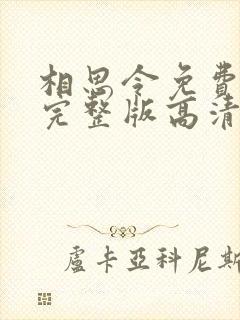 相思令免費
完整版高清
盧卡亞科尼斯